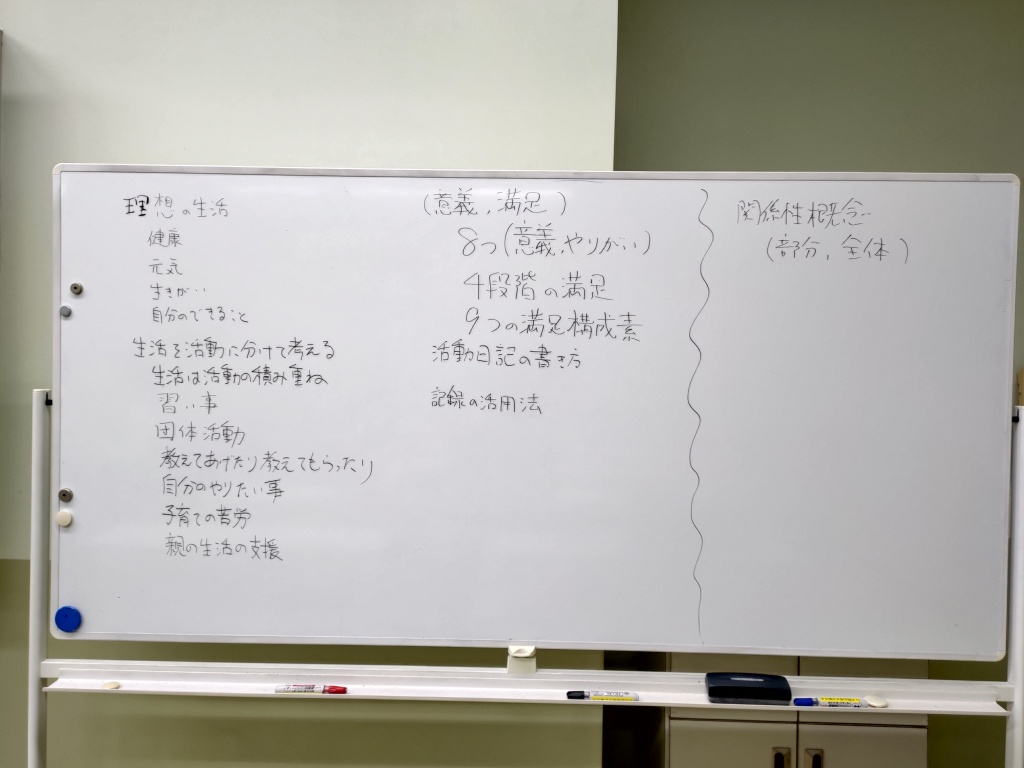 理想の生活
健康
元気
生きがい
自分のできること
生活を活動に分けて考える
生活は活動の積み重ね
習い事
団体活動
教えてあげたり教えてもらったり
自分のやりたい事
子育ての苦労
親の生活の支援
(意義,満足)
8つ(意義,やりがい)
4段階の満足
9つの満足構成素
活動日記の書き方
記録の活用法
関係性概念
(部分,全体)